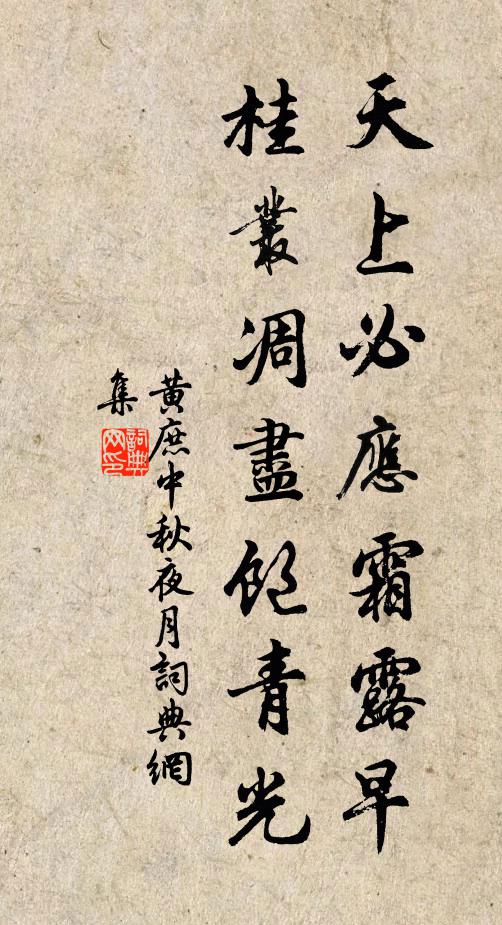 天上必應霜露早
桂叢凋盡飽青光
黃庶中秋夜月詞典網
集
詞典網印